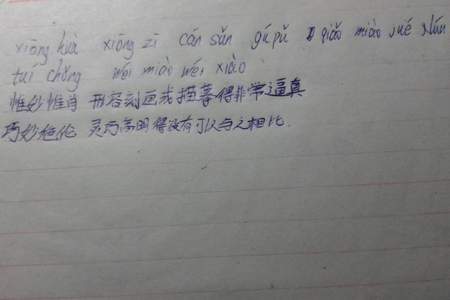 xiōng huái xiōng zī cán sǔn gǔ pǔ qiǎo miào jué lún
tuí chǎng wéi miào wéi xiào
惟妙惟肖 形容刻画或描摹得非常逼真
巧妙绝伦 灵巧高明得没有可以与之相比.